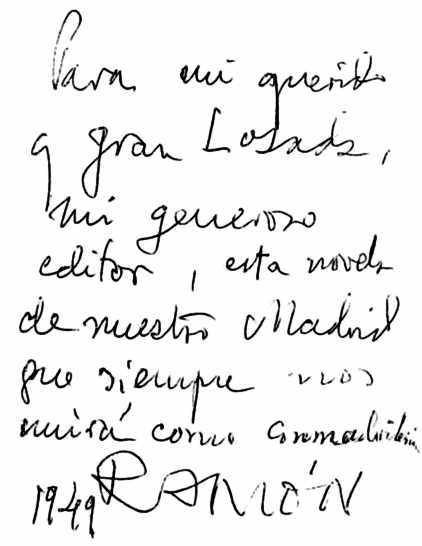 Para mi querido
y gran Losada,
mi generoso
editor, esta novela
de nuestro Madrid
que siempre nos
unirá como
1949 RAMÓN